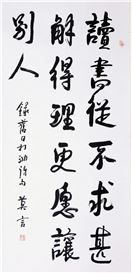 讀書從不求甚
解得理更愿讓
別人
錄舊日打油詩句 莫言